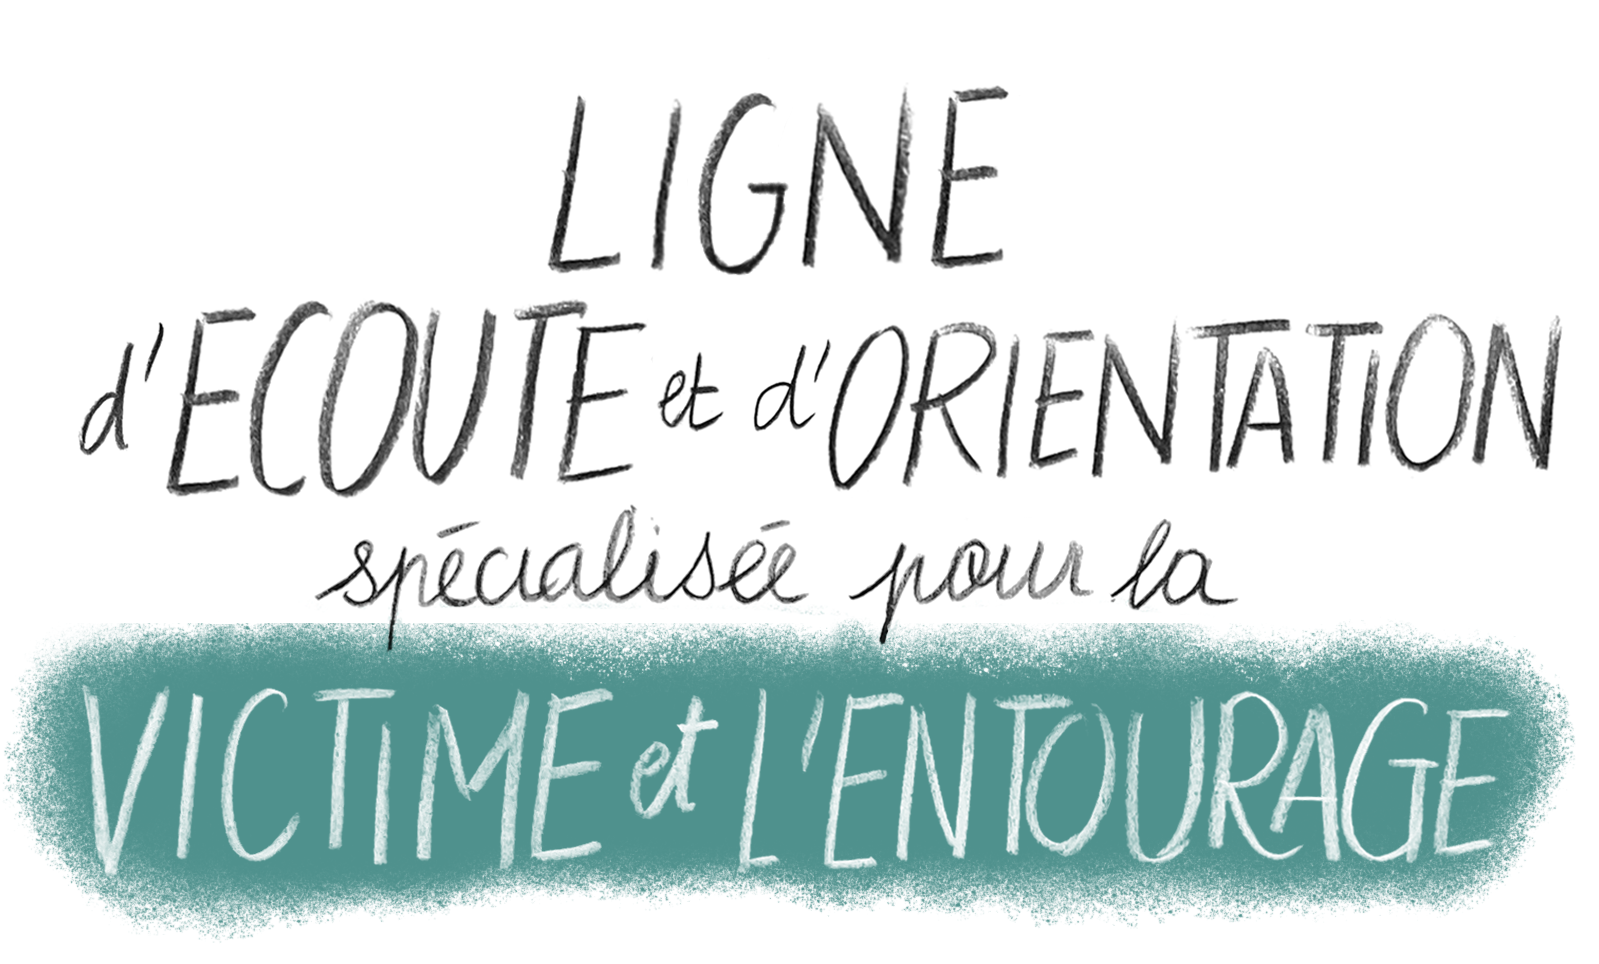 LIGNE
d'ECOUTE et d'ORIENTATION
spécialisée pour la
VICTIME et L'ENTOURAGE